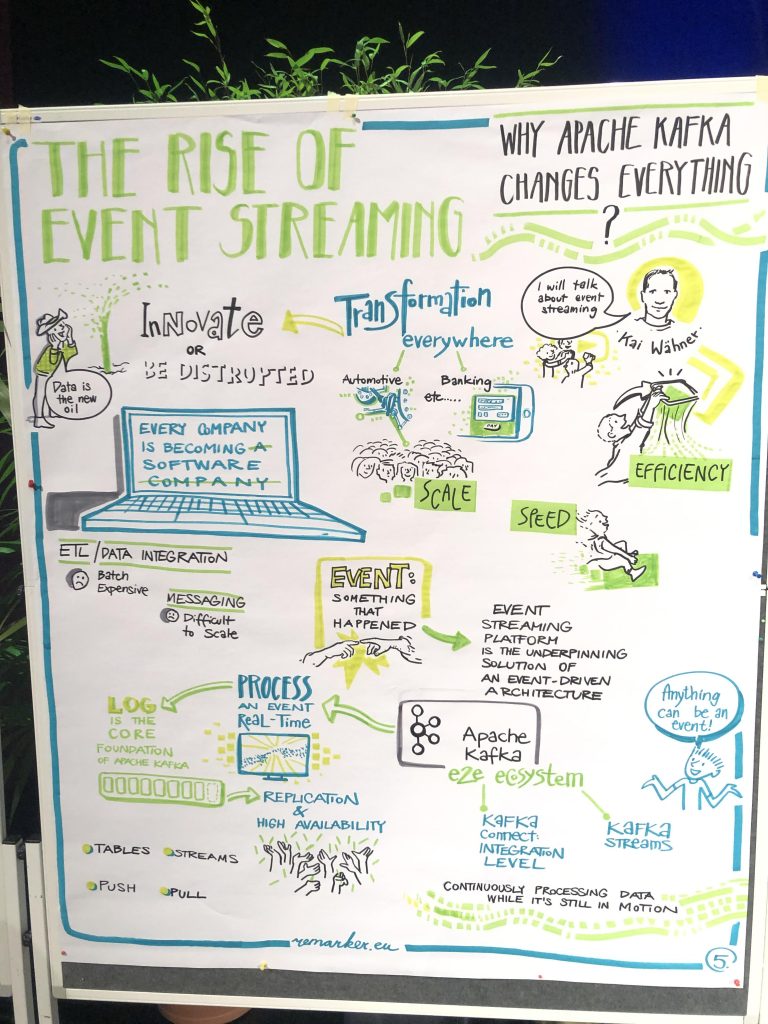 THE RISE OF
EVENT STREAMING
WHY APACHE KAFKA
CHANGES EVERYTHING
?
I will talk
about event
streaming
Kai Wähner
Transformation
everywhere
InNovate
OR
BE DISTRUPTED
Data is
the new
oil
Automotive
Banking
etc.....
PAY
EVERY COMPANY
IS BECOMING A
SOFTWARE
COMPANY
SCALE
EFFICIENCY
SPEED
ETL/DATA INTEGRATION
Batch
Expensive
MESSAGING
Difficult
to Scale
EVENT:
SOMETHING
THAT
HAPPENED
EVENT
STREAMING
PLATFORM
IS THE UNDERPINNING
SOLUTION OF
AN EVENT-DRIVEN
ARCHITECTURE
Anything
can be an
event!
PROCESS
AN EVENT
ReaL-Time
LOG
IS THE
CORE
FOUNDATION
OF APACHE KAFKA
Apache
Kafka
e2e ecosystem
REPLICATION
&
HIGH AVAILABILITY
KAFKA
Connect:
INTEGRATION
LEVEL
KAFKA
STREAMS
TABLES
STREAMS
PUSH
PULL
CONTINUOUSLY PROCESSING DATA
WHILE IT'S STILL IN MOTION
remarker.eu
5.